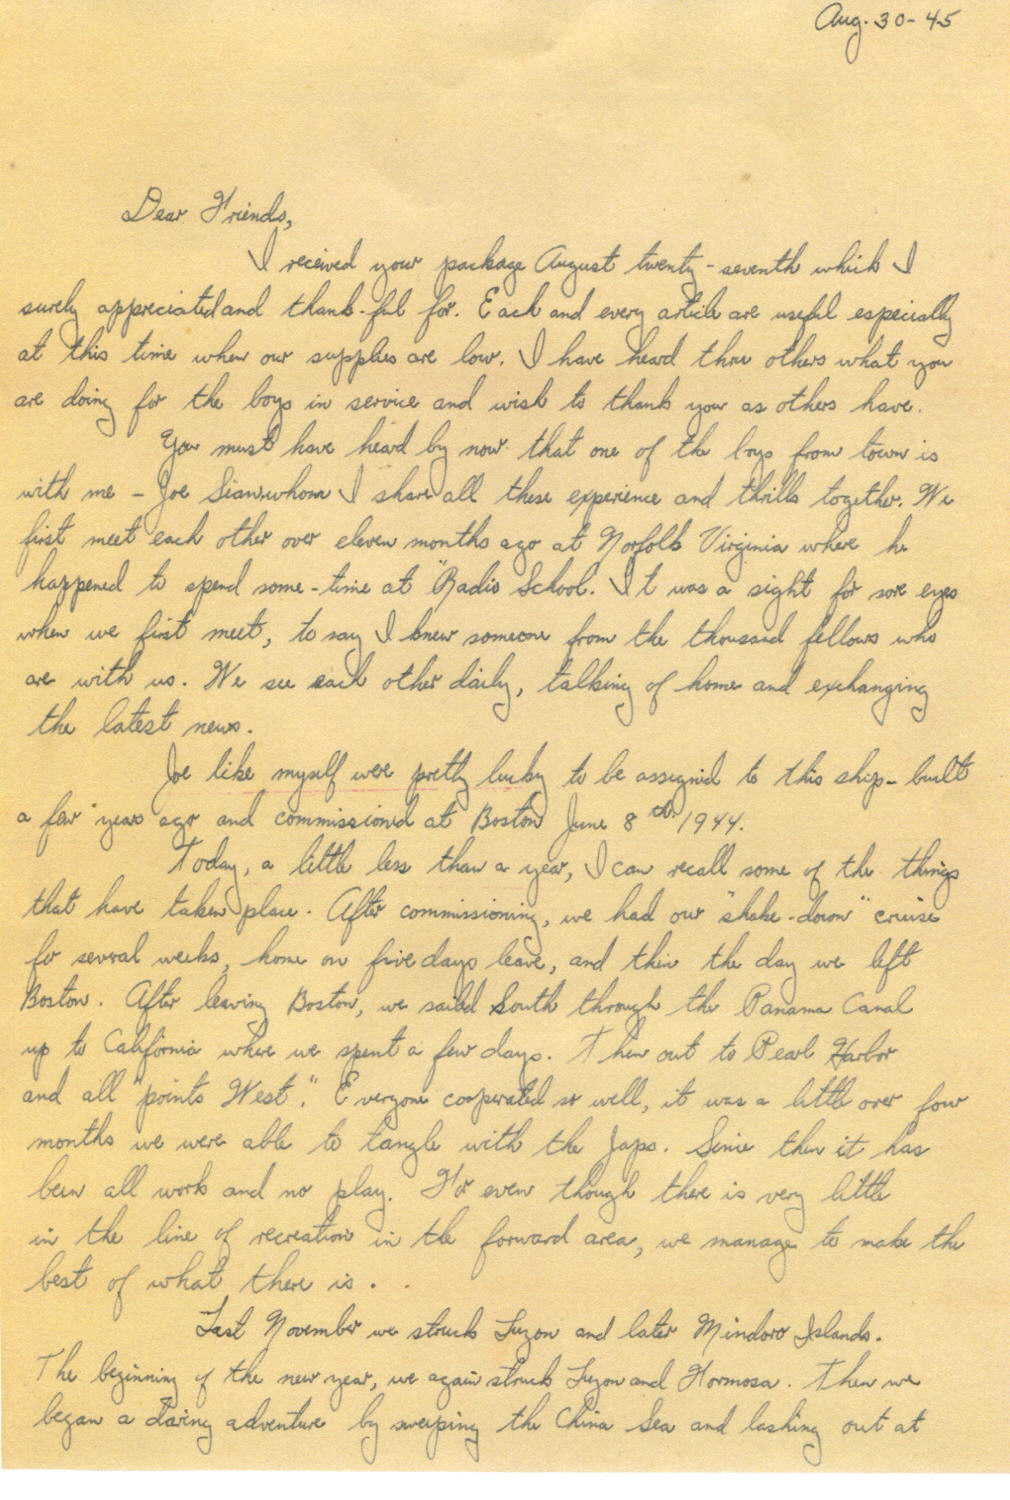 Aug. 30-45
Dear Friends,
I received your package August twenty-seventh which I
surely appreciated and thank-ful for. Each and every article are useful especially
at this time when our supplies are low. I have heard thru others what you
are doing for the boys in service and wish to thank you as others have.
You must have heard by now that one of the boys from town is
with me - Joe whom I share all these experience and thrills together. We
first meet each other over eleven months ago at Norfolk Virginia where he
happened to spend some-time at "Radio School. It was a sight for sore eyes
when we first meet, to say I knew someone from the thousand fellows who
are with us. We see each other daily, talking of home and exchanging
the latest news.
Joe like myself were pretty lucky to be assigned to this ship - built
a few years ago and commissioned at Boston June 8th 1944.
Today, a little less than a year, I can recall some of the things
that have taken place. After commissioning, we had our "shake-down" cruise
for several weeks, home on five days leave, and then the day we left
Boston. After leaving Boston, we sailed South through the Panama Canal
up to California where we spent a few days. Then out to Pearl Harbor
and all "points West". Everyone cooperated so well, it was a little over four
months we were able to tangle with the Japs. Since then it has
been all work and no play. For even though there is very little
in the line of recreation in the forward area, we manage to make the
best of what there is.
Last November we struck Luzon and later Mindoro Islands.
The beginning of the new year, we again struck Luzon and Formosa. Then we
began a daring adventure by sweeping the China Sea and lashing out at